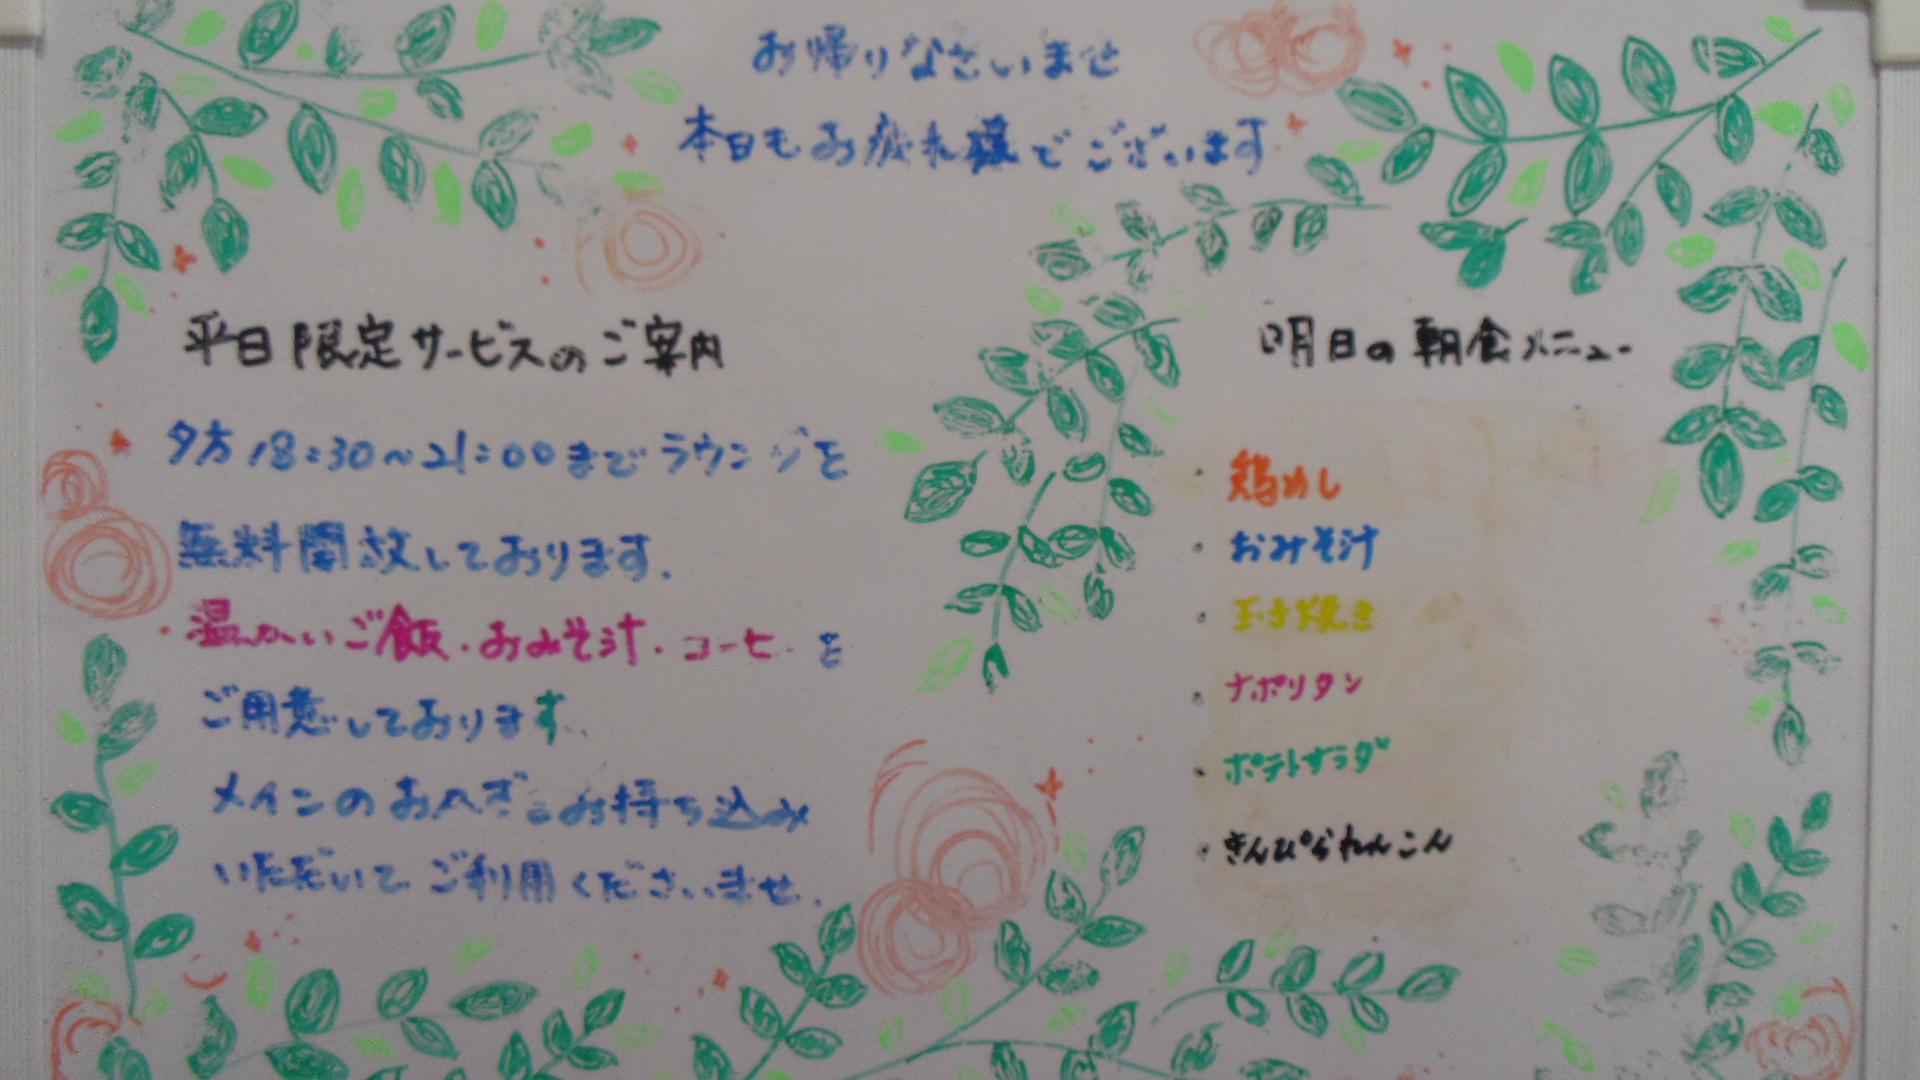 お帰りなさいませ
本日もお疲れ様でございます
平日限定サービスのご案内
夕方18:30~21:00までラウンジを
無料開放しております.
温かいご飯・おみそ汁・コーヒーを
ご用意しております.
メインのおかずをお持ち込み
いただいてご利用くださいませ.
明日の朝食メニュー
・鶏めし
・おみそ汁
・玉子焼き
・ナポリタン
・ポテトサラダ
・きんぴられんこん